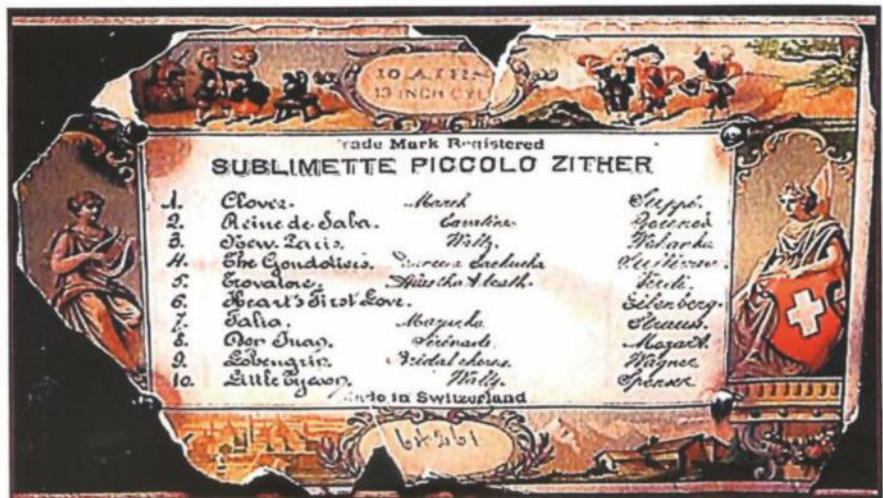 10 AIRS
13 INCH CYL
Trade Mark Registered
SUBLIMETTE PICCOLO ZITHER
1. Clover. March Suppé.
2. Reine de Saba. Cavatine Gounod
3. New Paris. Waltz.
4. The Gondoliers. Cachucha Sullivan.
5. Trovatore. Verdi.
6. Heart's First Love. Eilenberg.
7. Talia. Mazurka Strauss.
8. Don Juan. Sérénade. Mozart.
9. Lohengrin. Bridal chorus. Wagner
10. Little Tycoon. Waltz. Spenser
Made in Switzerland